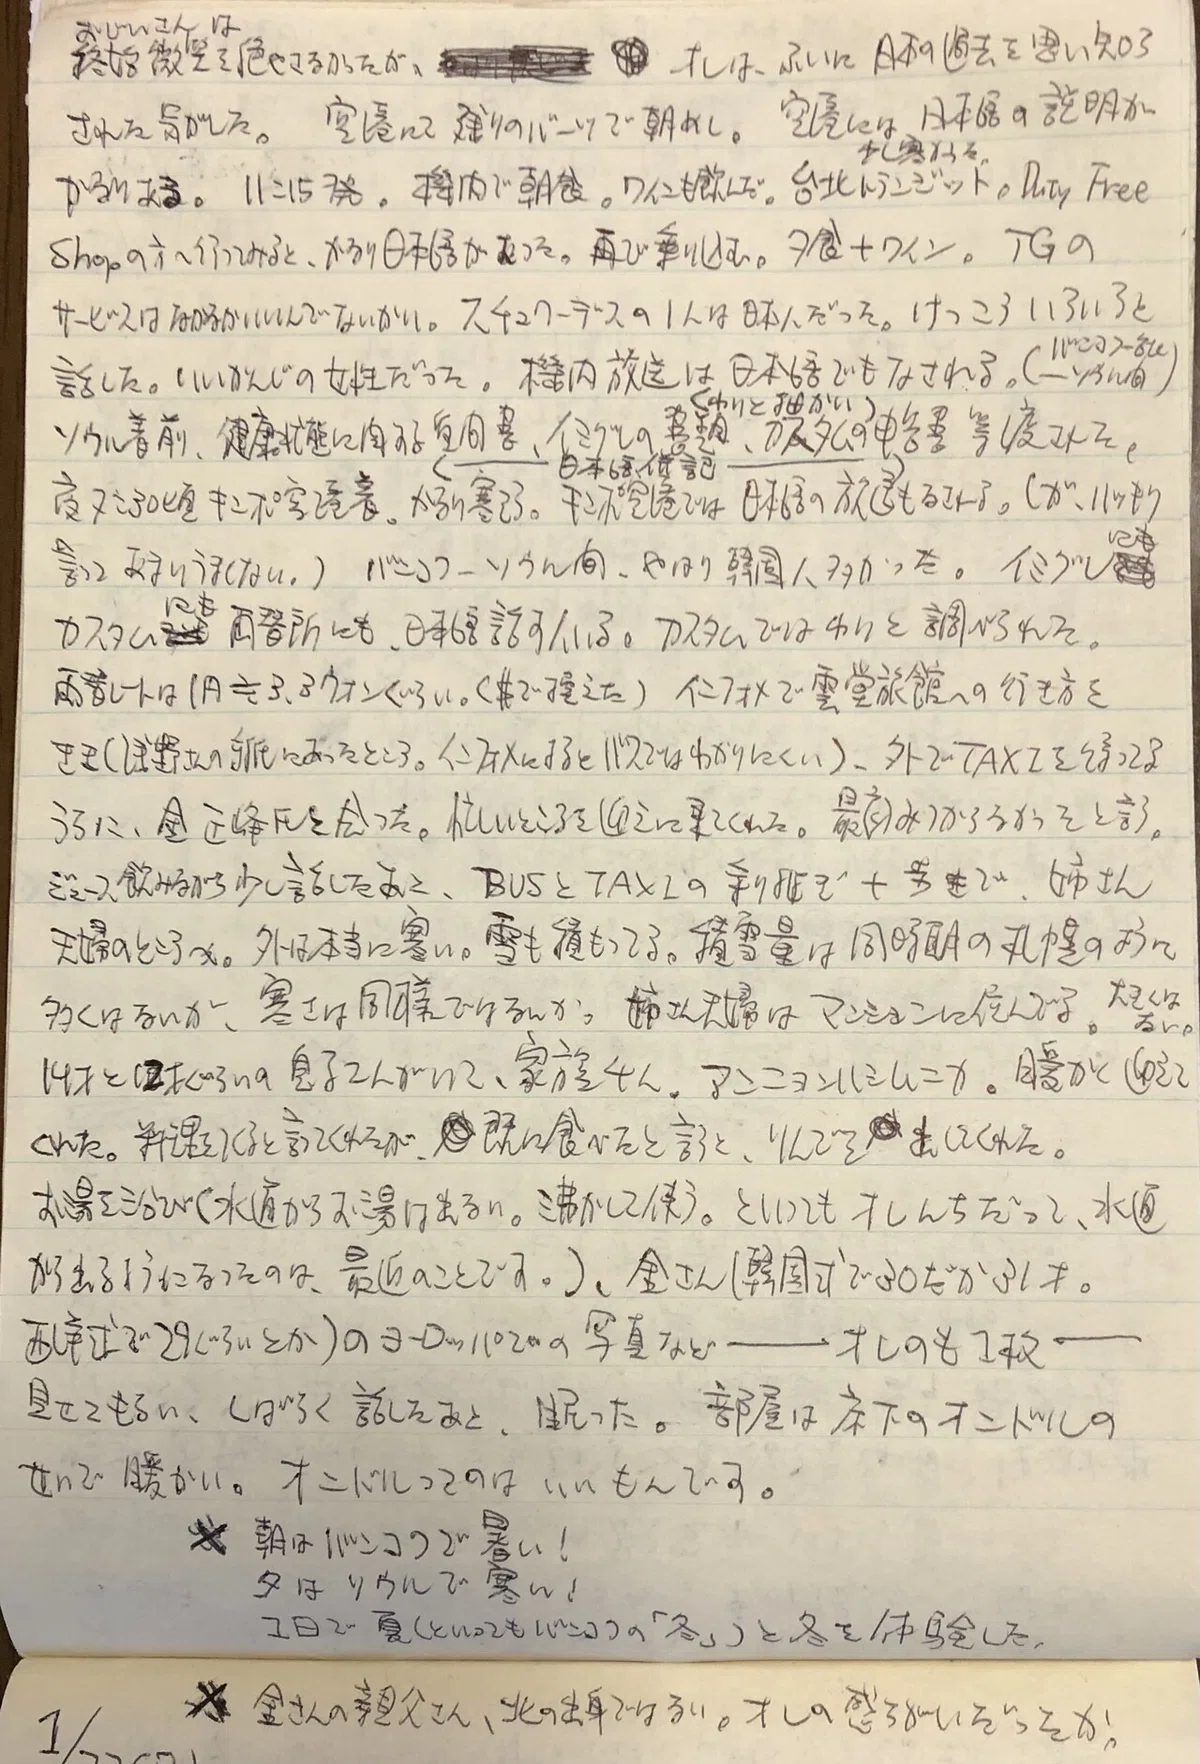 おじいさんは
終始微笑を絶やさなかったが、 オレは、ふいに日本の過去を思い知ら
された気がした。 空港にて残りのバーツで朝めし。 空港には日本語の説明が
少し寒かった。
かなりある。 11:15発。 機内で朝食。ワインも飲んだ。台北トランジット。Duty Free
Shopの方へ行ってみると、かなり日本語があった。再び乗り込む。夕食+ワイン。 TGの
サービスはなかなかいいんでないかい。スチュワーデスの1人は日本人だった。けっこういろいろと
話した。いいかんじの女性だった。機内放送は日本語でもなされる。(バンコク-台北
-ソウル間)
(わりと細かい)
ソウル着前、健康状態に関する質問書、イミグレの書類、カスタムの申告書等渡された。
(―― 日本語併記 ――)
夜7:30頃キンポ空港着。かなり寒そう。キンポ空港では日本語の放送もなされる。(が、ハッキリ
言ってあまりうまくない。) バンコク-ソウル間、やはり韓国人多かった。 イミグレにも
カスタムにも両替所にも、日本語話す人いる。カスタムではわりと調べられた。
両替レートは1円≒3.3ウオンぐらい。($で換えた) インフォメで雲堂旅館への行き方を
きき( さんの紙にあったところ。インフォメによるとバスではわかりにくい)、外でTAXIを待ってる
うちに、金正峰氏と会った。忙しいところを迎えに来てくれた。最初みつからなかったと言う。
ジュース飲みながら少し話したあと、BUSとTAXIの乗り継ぎ+歩きで、姉さん
夫婦のところへ。外は本当に寒い。雪も積もってる。積雪量は同時期の札幌のように
多くはないが、寒さは同様ではないか。姉さん夫婦はマンションに住んでる。大きくは
ない。
14才と12才ぐらいの息子2人がいて、家族4人。アンニョンハシムニカ。暖かく迎えて
くれた。料理をつくると言ってくれたが、既に食べたと言うと、りんごを出してくれた。
お湯を浴び(水道からお湯は出ない。沸かして使う。といってもオレんちだって、水道
から出るようになったのは、最近のことです。)、金さん(韓国式で30だか31才。
西洋式で29ぐらいとか)のヨーロッパでの写真など――オレのも1枚――
見せてもらい、しばらく話したあと、眠った。部屋は床下のオンドルの
せいで暖かい。オンドルってのはいいもんです。
※ 朝はバンコクで暑い!
夕はソウルで寒い!
1日で夏(といってもバンコクの「冬」)と冬を体験した。
※ 金さんの親父さん、北の出身ではない。オレの感ちがいだったか。
1/